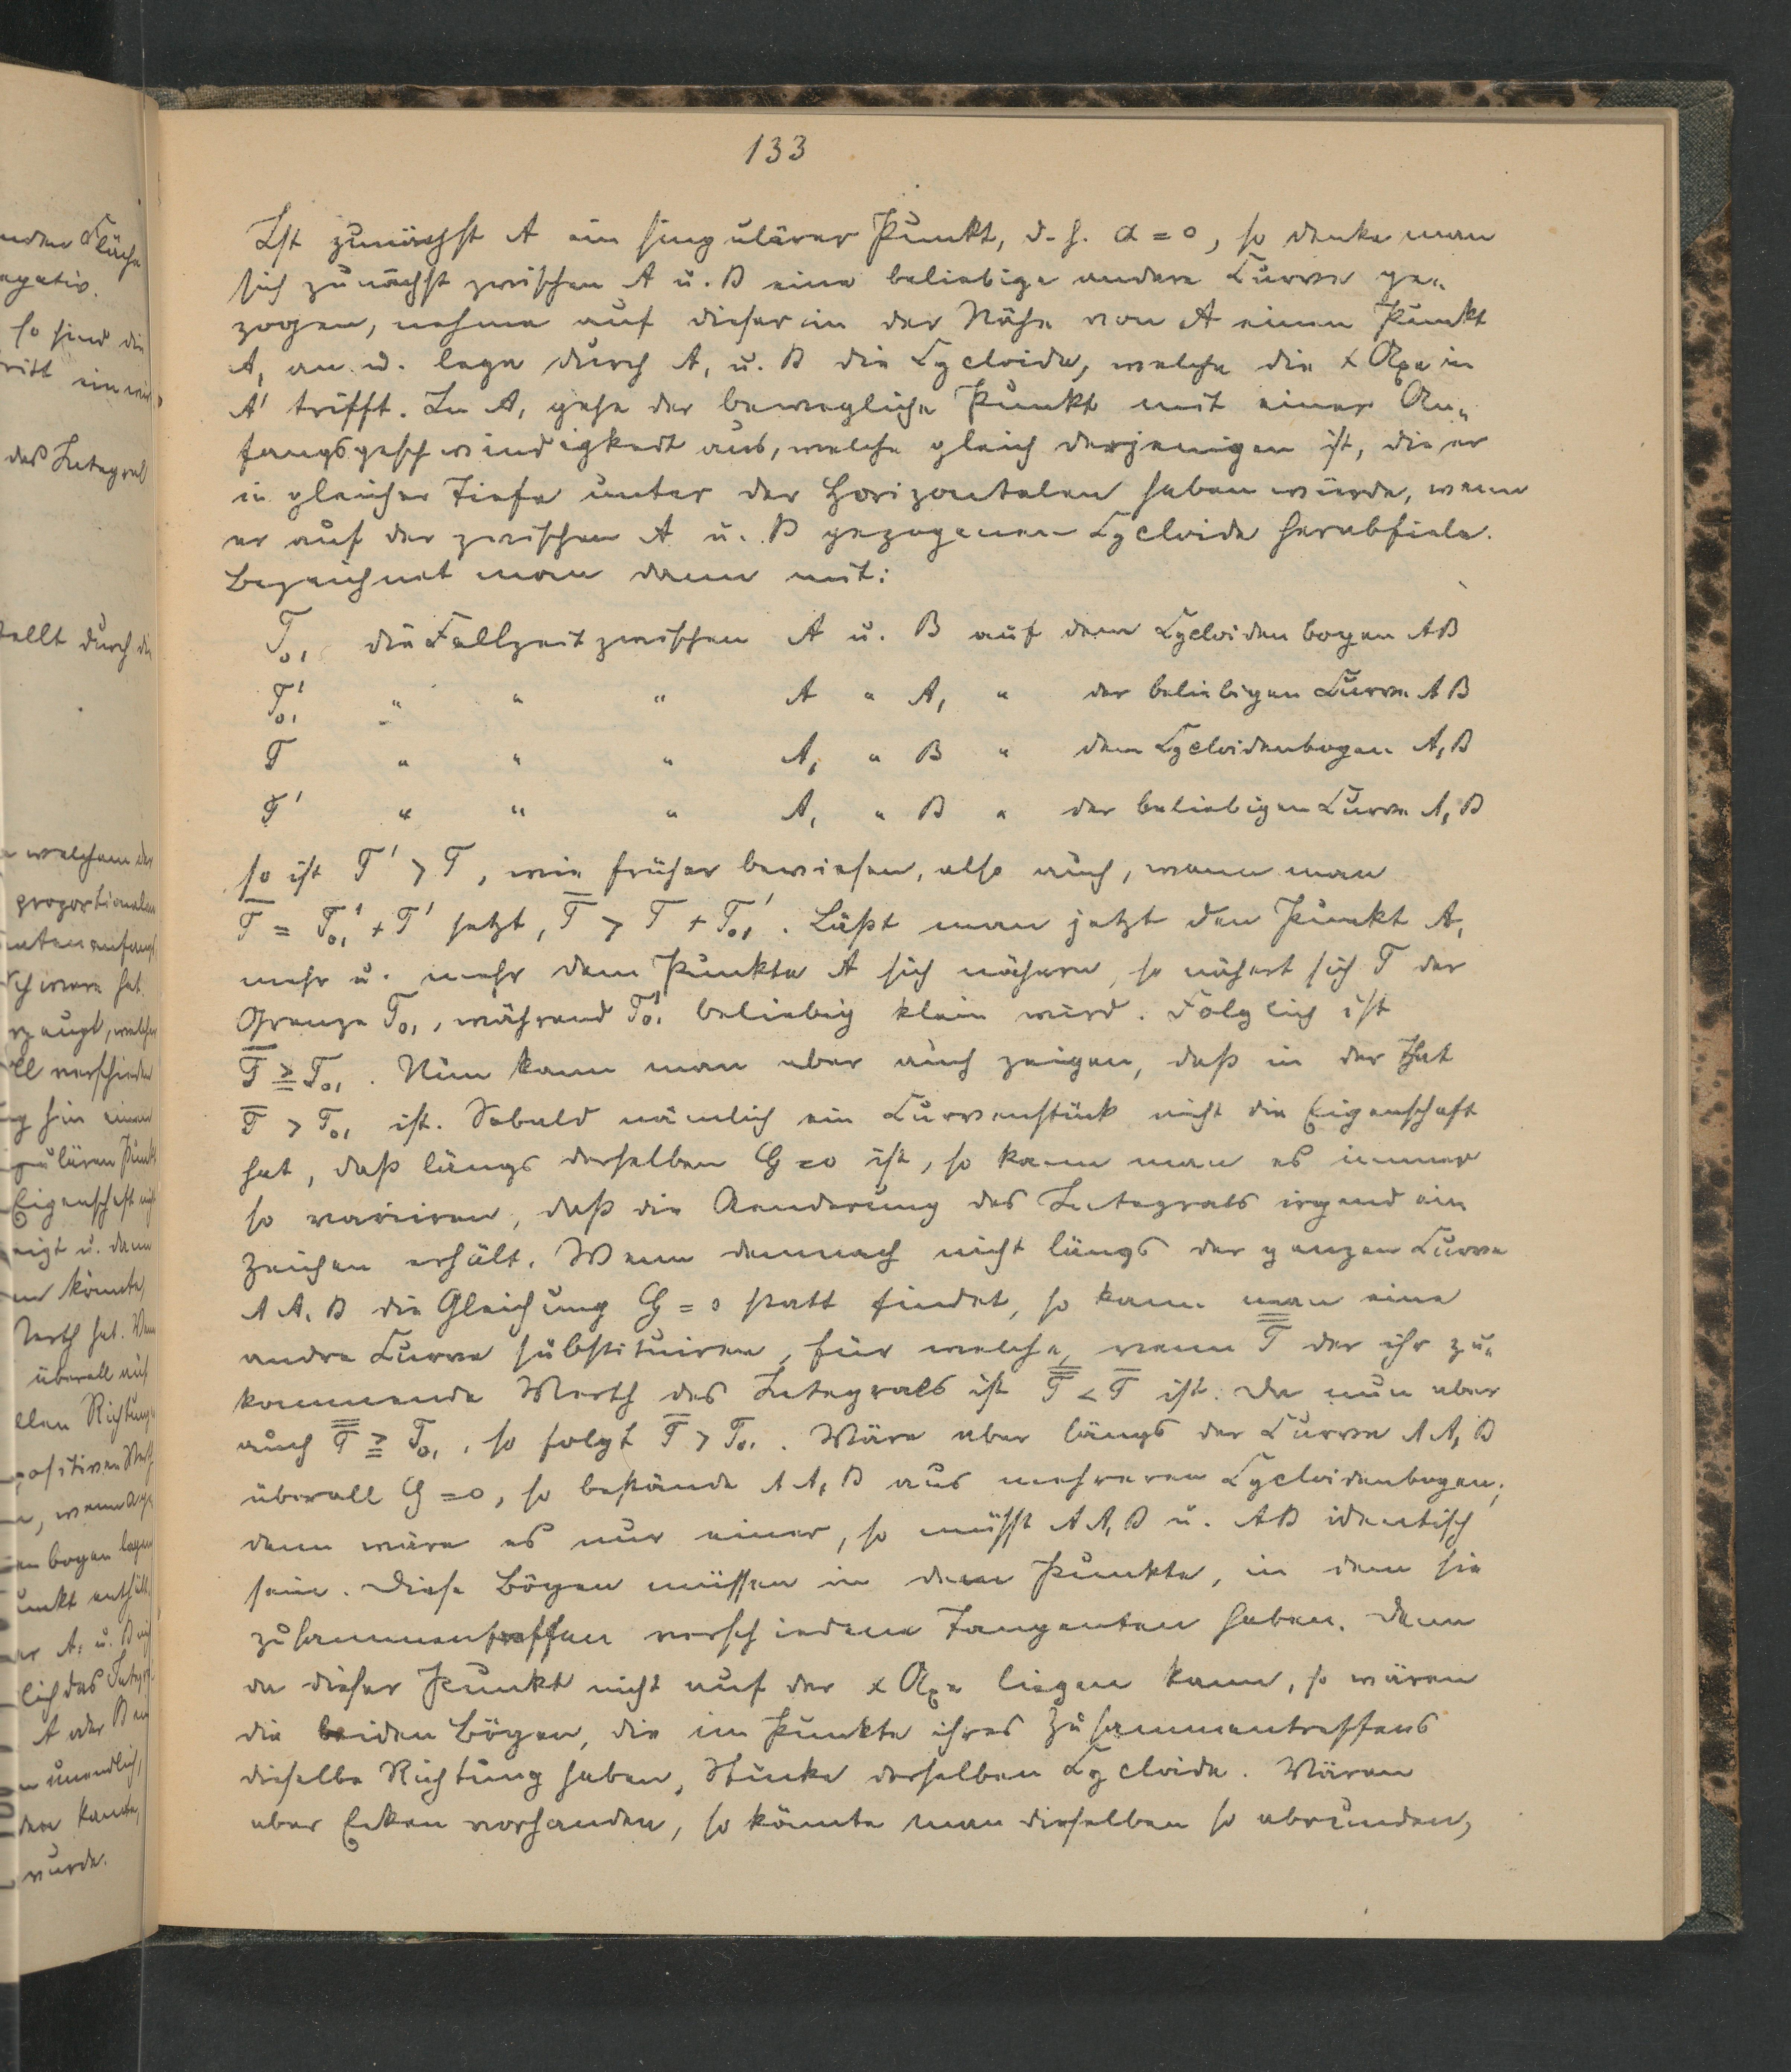 133
Ist zunächst A ein singulärer Punkt, d. h. α = 0, so denke man
sich zunächst zwischen A u. B eine beliebige andere Curve ge-
zogen, nehme auf dieser in der Nähe von A einen Punkt
A₁ an u. lege durch A₁ u. B die Cycloide, welche die x Axe in
A' trifft. In A₁ gehe der bewegliche Punkt mit einer An-
fangsgeschwindigkeit aus, welche gleich derjenigen ist, die er
in gleicher Tiefe unter der Horizontalen haben würde, wenn
er auf der zwischen A u. B gezogenen Cycloide herabfiele.
Bezeichnet man dann mit:
T₀₁ die Fallzeit zwischen A u. B auf dem Cycloidenbogen AB
T'₀₁ " " " A " A₁ " der beliebigen Curve AB
T " " " A₁ " B " dem Cycloidenbogen A₁B
T' " " " A₁ " B " der beliebigen Curve A₁B
so ist T' > T, wie früher bewiesen, also auch, wenn man
T̅ = T'₀₁ + T' setzt, T̅ > T + T'₀₁. Läßt man jetzt den Punkt A₁
mehr u. mehr dem Punkte A sich nähern, so nähert sich T der
Grenze T₀₁, während T'₀₁ beliebig klein wird. Folglich ist
T̅ ≧ T₀₁. Nun kann man aber auch zeigen, daß in der That
T̅ > T₀₁ ist. Sobald nämlich ein Curvenstück nicht die Eigenschaft
hat, daß längs derselben G = 0 ist, so kann man es immer
so variiren, daß die Aenderung des Integrals irgend ein
Zeichen erhält. Wenn demnach nicht längs der ganzen Curve
A A₁ B die Gleichung G = 0 statt findet, so kann man eine
andre Curve substituiren, für welche, wenn T̿ der ihr zu-
kommende Werth des Integrals ist T̿ < T̅ ist. Da nun aber
auch T̿ ≧ T₀₁, so folgt T̅ > T₀₁. Wäre aber längs der Curve A A₁ B
überall G = 0, so bestände A A₁ B aus mehreren Cycloidenbogen;
denn wäre es nur einer, so müsst A A₁ B u. AB identisch
sein. Diese Bögen müssen in dem Punkte, in dem sie
zusammentreffen verschiedene Tangenten haben. Denn
da dieser Punkt nicht auf der x Axe liegen kann, so wären
die beiden Bögen, die im Punkte ihres Zusammentreffens
dieselbe Richtung haben, Stücke derselben Cycloide. Wären
aber Ecken vorhanden, so könnte man dieselben so abrunden,